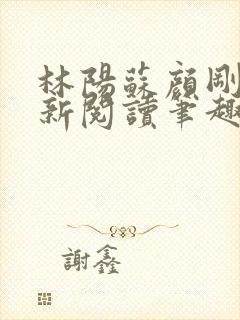 林陽蘇顔剛
新閱讀筆趣
謝鑫